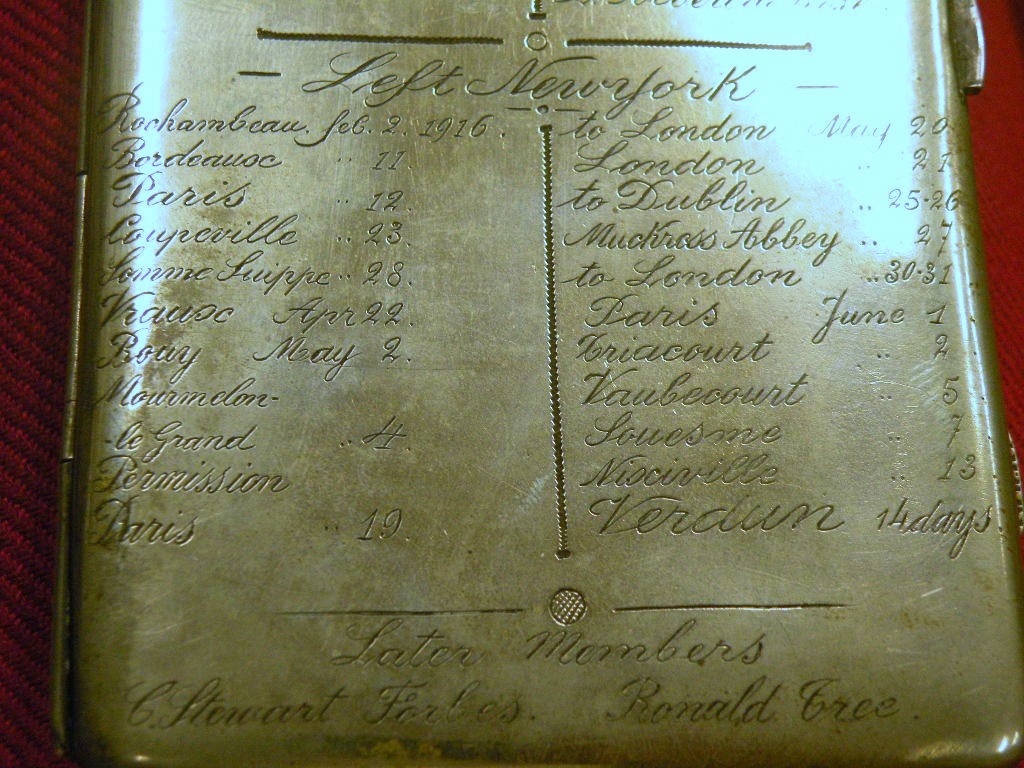 Left New York
Rochambeau. feb. 2. 1916.
Bordeausc " 11
Paris " 12.
Coupeville " 23.
Somme Suippe " 28.
Vrausc Apr 22.
Bouy May 2.
Mourmelon-
-le Grand " 4.
Permission
Paris " 19.
to London May 20
London " 21
to Dublin " 25-26
Muckross Abbey " 27
to London " 30-31
Paris June 1
Triacourt " 2
Vaubecourt " 5
Souesme " 7
Nisciville " 13
Verdun 14 days.
Later Members
C. Stewart Forbes. Ronald Tree.